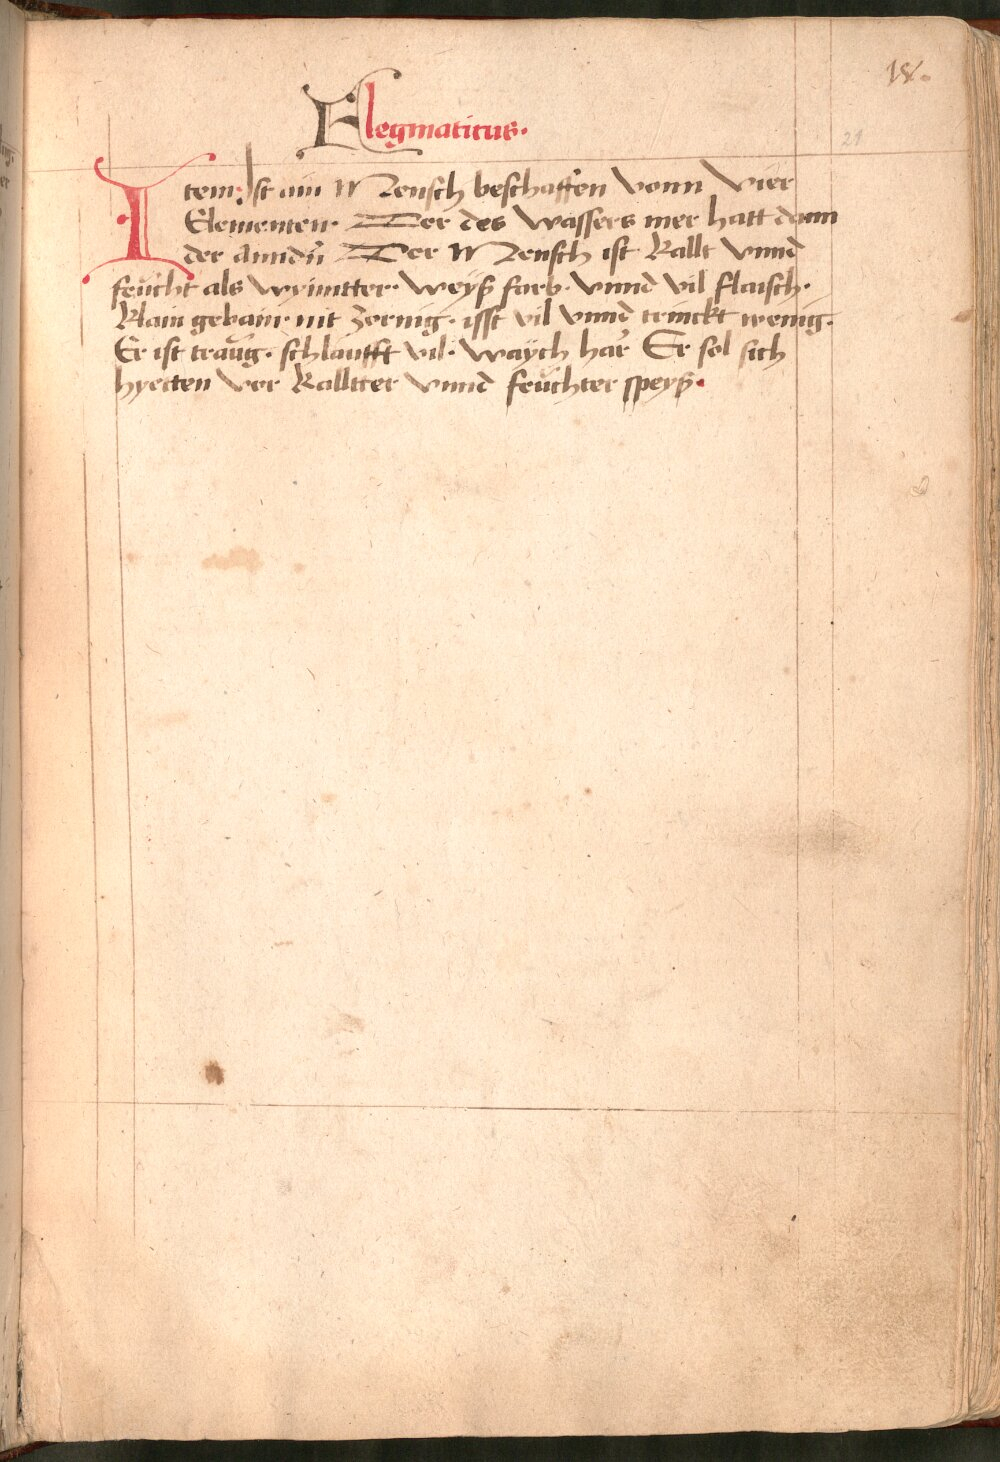 18.
Flegmaticus.
21
Item: Ist ain Mensch beschaffen vonn vier
Elementen. Der des Wassers mer hatt dann
der anndn̄ Der Mensch ist kallt vnnd
feücht als wynntter. weyß farb. vnnd vil flaisch.
klain gebain. nit zornig. isst vil vnnd trinckt wenig.
Er ist traüg. schlaufft vil. waych har Er sol sich
hyetten vor kalltter vnnd feüchter speyß.